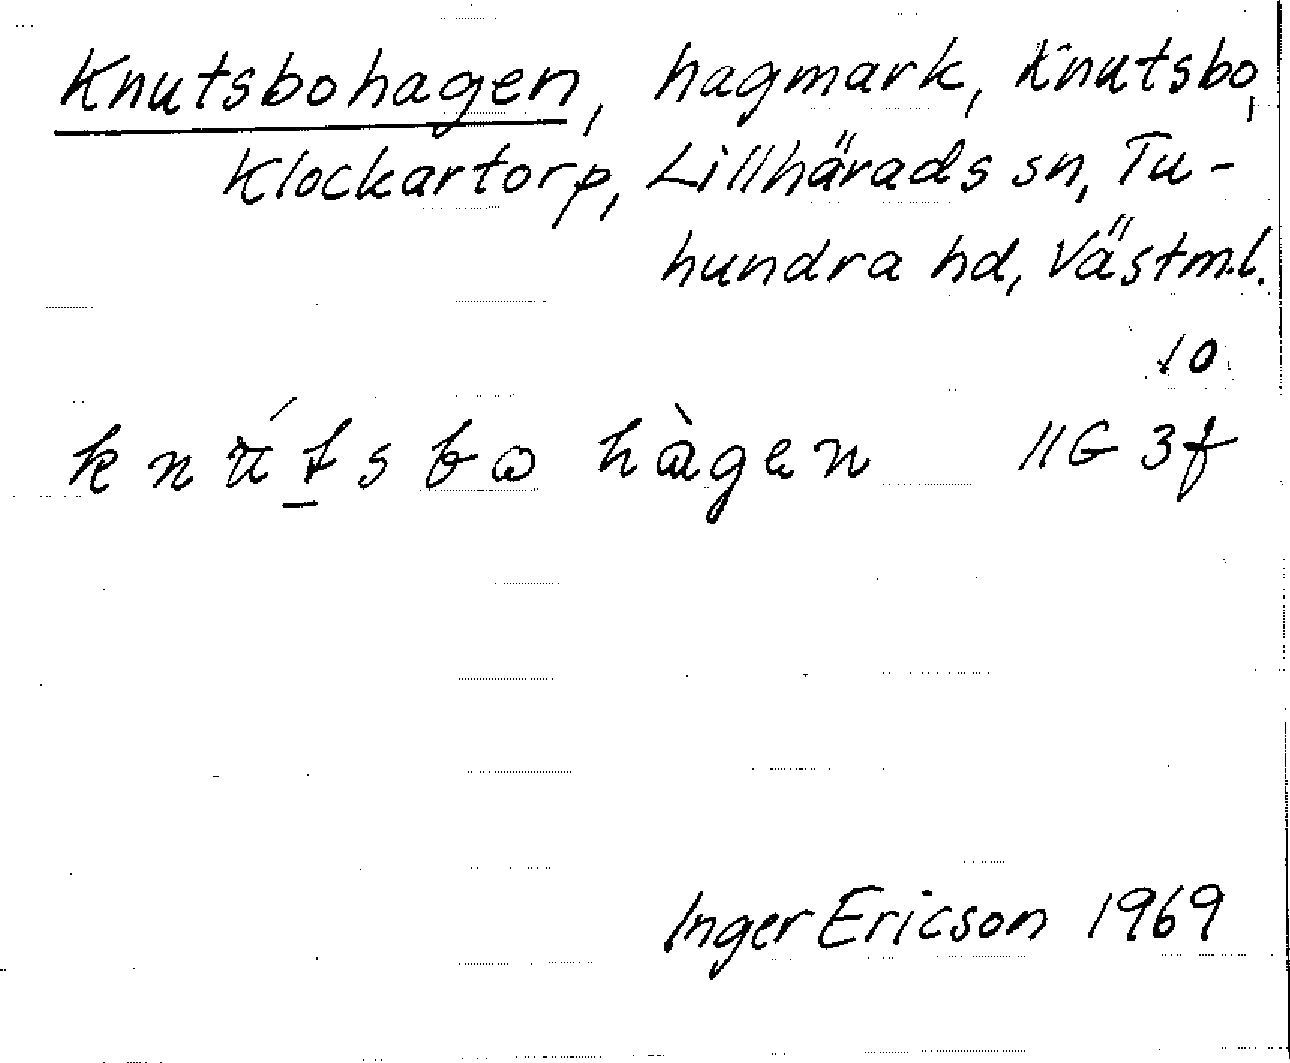 Knutsbohagen, hagmark, Knutsbo,
Klockartorp, Lillhärads sn, Tu-
hundra hd, Västml.
10
knut́sbω hàgen 11G 3f
Inger Ericson 1969